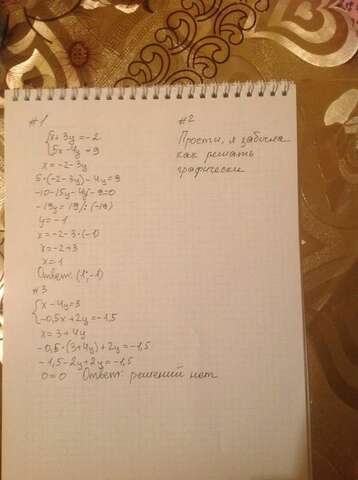 #1
{x + 3y = -2
{5x - 4y = 9
x = -2 - 3y
5·(-2-3y) - 4y = 9
-10 - 15y - 4y - 9 = 0
-19y = 19 /: (-19)
y = -1
x = -2 - 3·(-1)
x = -2 + 3
x = 1
Ответ: (1; -1)
#2
Прости, я забыла
как решать
графически
#3
{x - 4y = 3
{-0,5x + 2y = -1,5
x = 3 + 4y
-0,5·(3+4y) + 2y = -1,5
-1,5 - 2y + 2y = -1,5
0 = 0 Ответ: решений нет